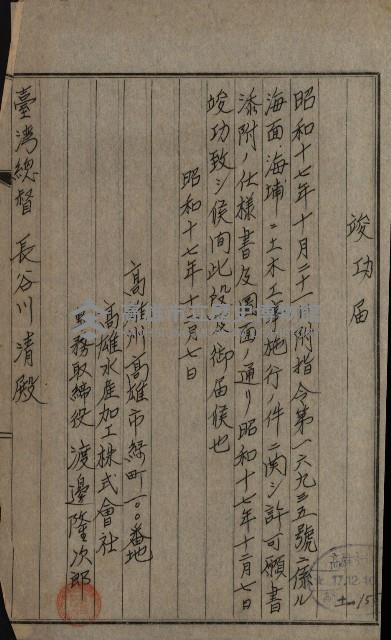 竣功届
昭和十七年十月二十一日附指令第一六九三五號ニ係ル
海面海埔ニ土木工事施行ノ件ニ関シ許可願書
添附ノ仕様書及圖面ノ通リ昭和十七年十二月七日
竣功致シ候間此段及御届候也
昭和十七年十二月七日
高雄州高雄市緑町一〇〇番地
高雄水産加工株式會社
取締役 渡邉隆次郎
臺灣總督 長谷川清殿
高雄市立歷史博物館
17.12.10